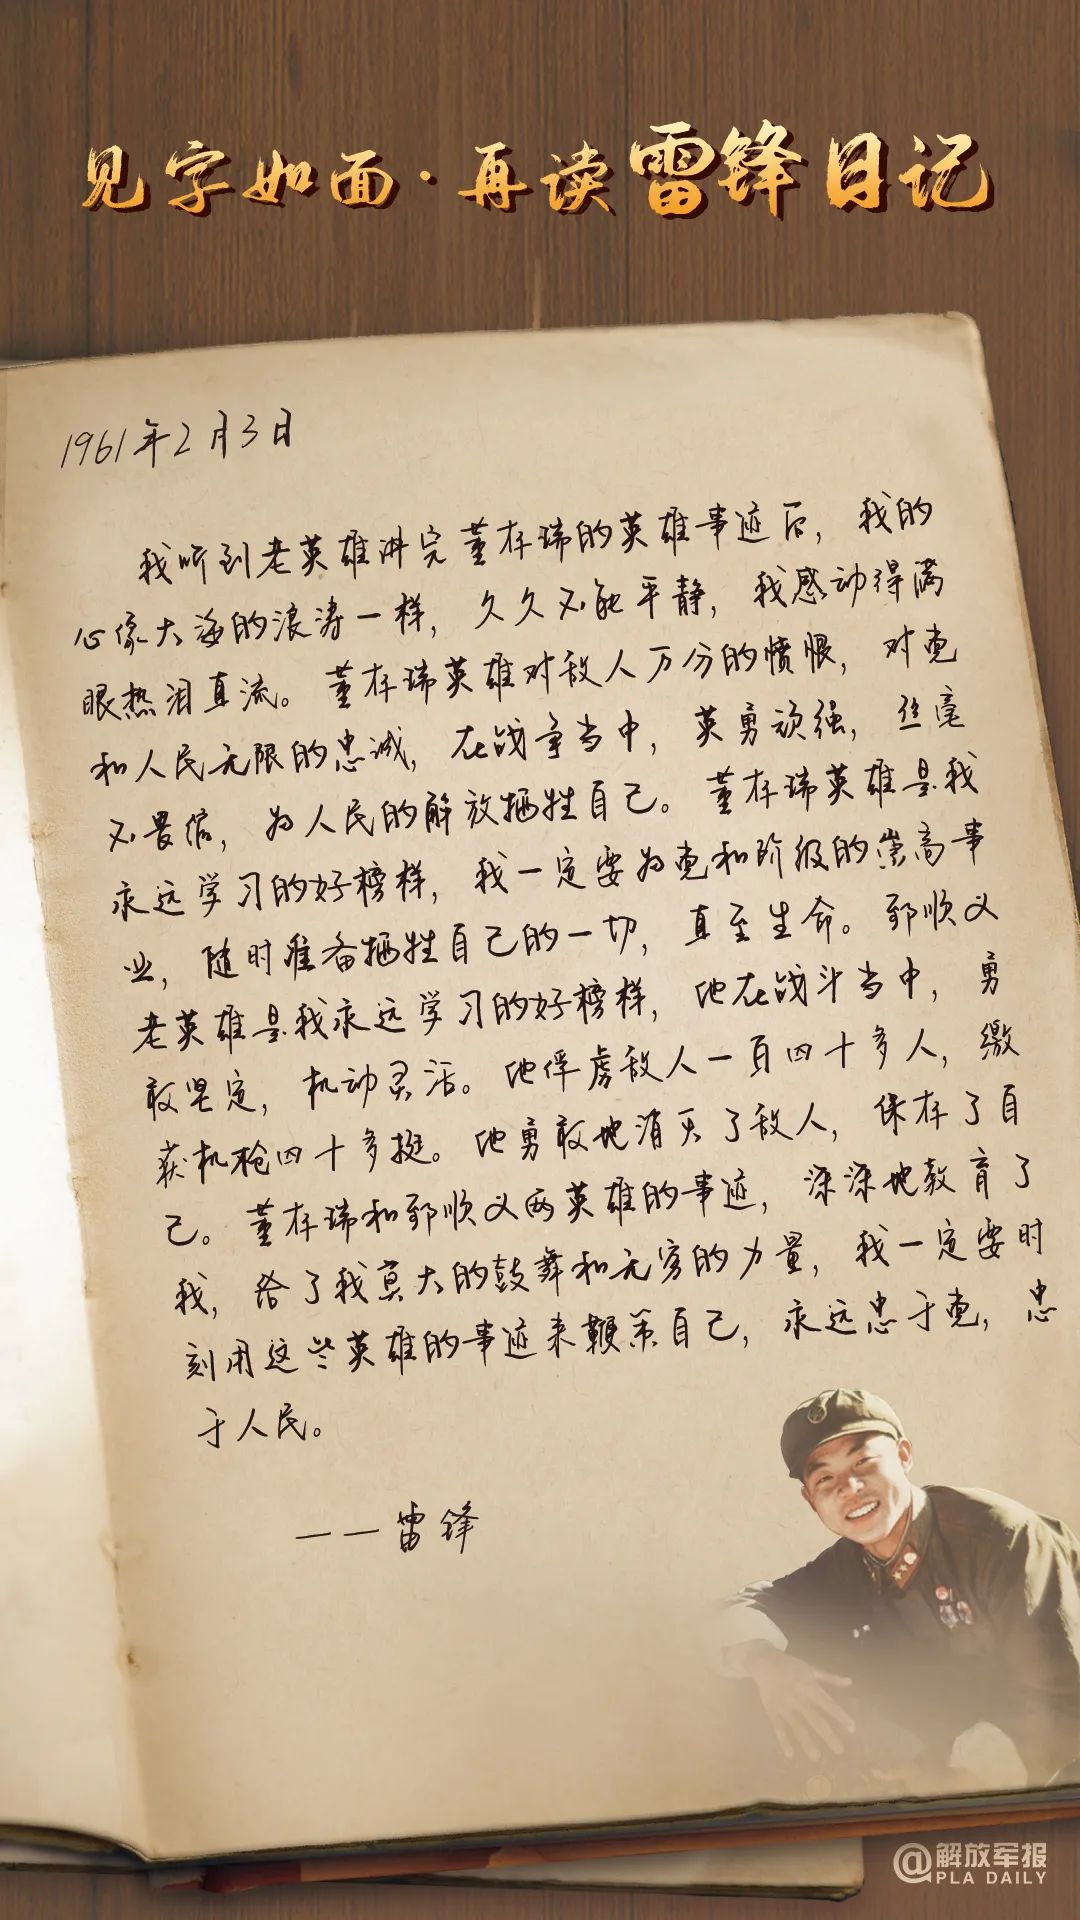 见字如面·再读雷锋日记
1961年2月3日
我听到老英雄讲完董存瑞的英雄事迹后，我的
心像大海的浪涛一样，久久不能平静，我感动得满
眼热泪直流。董存瑞英雄对敌人万分的愤恨，对党
和人民无限的忠诚，在战争当中，英勇顽强，丝毫
不畏缩，为人民的解放牺牲自己。董存瑞英雄是我
永远学习的好榜样，我一定要为党和阶级的崇高事
业，随时准备牺牲自己的一切，直至生命。郅顺义
老英雄是我永远学习的好榜样，他在战斗当中，勇
敢坚定，机动灵活。他俘虏敌人一百四十多人，缴
获机枪四十多挺。他勇敢地消灭了敌人，保存了自
己。董存瑞和郅顺义两英雄的事迹，深深地教育了
我，给了我莫大的鼓舞和无穷的力量，我一定要时
刻用这些英雄的事迹来鞭策自己，永远忠于党，忠
于人民。
——雷锋
@解放军报
PLA DAILY